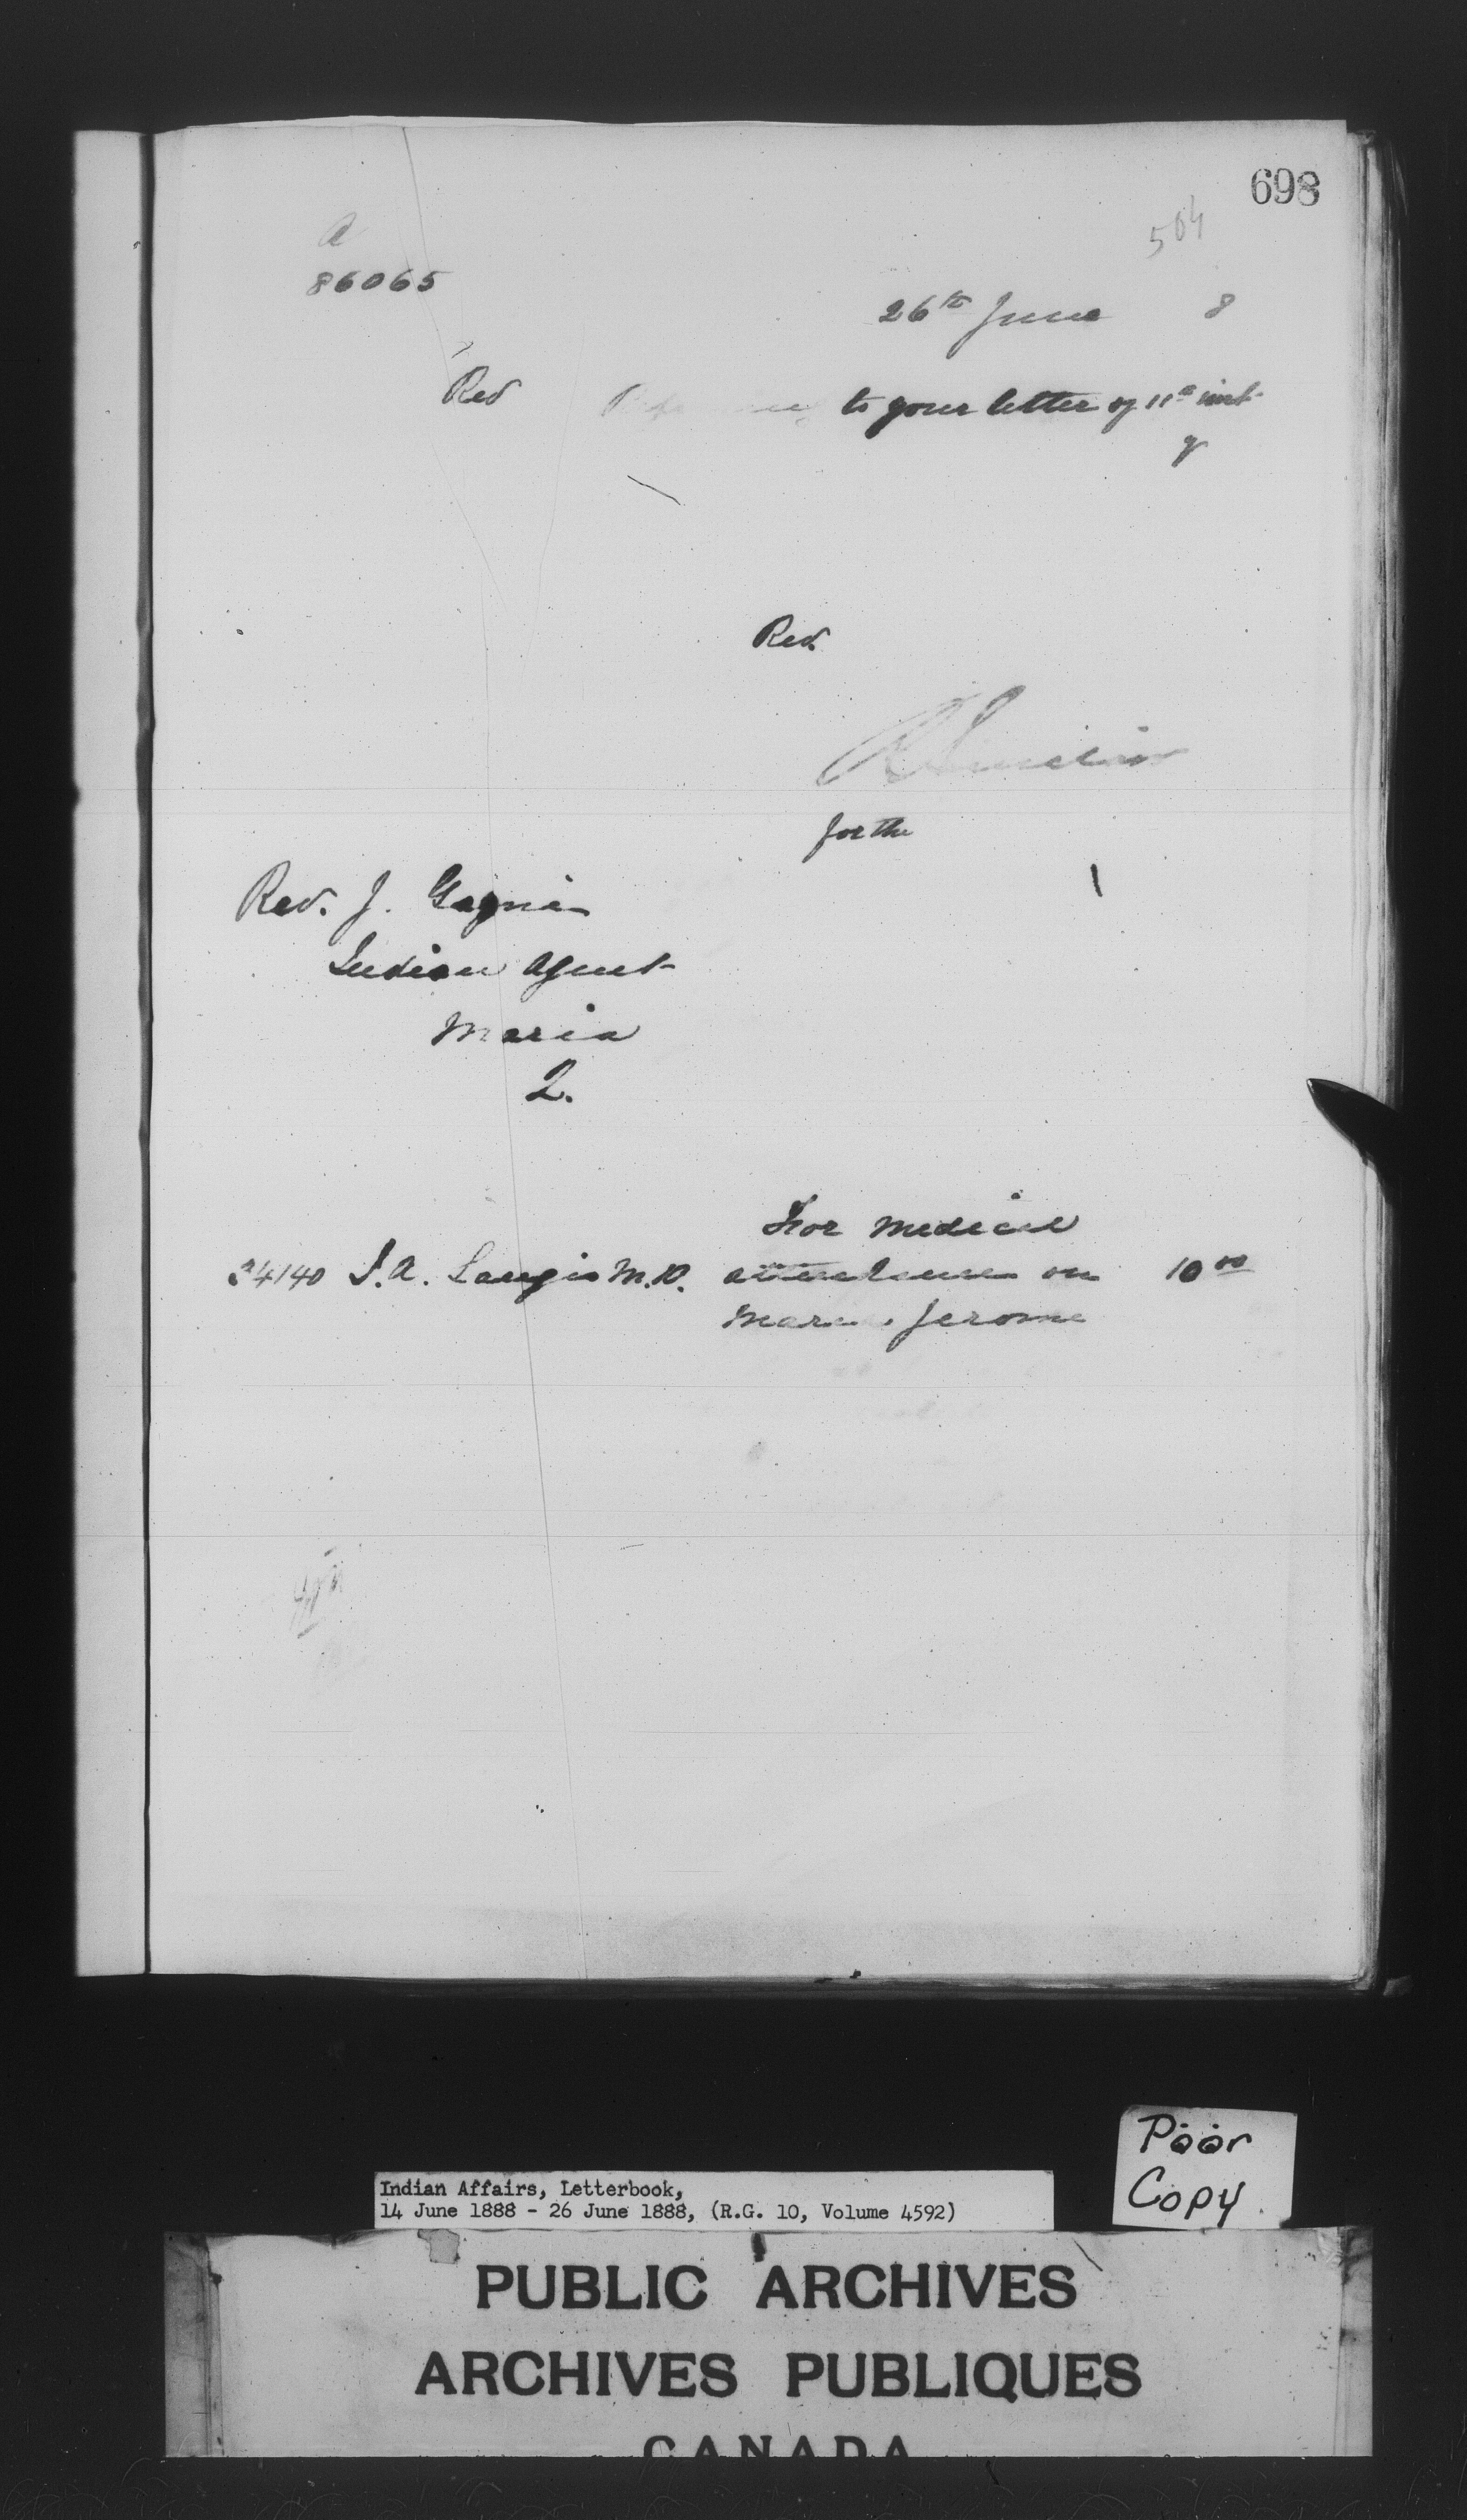 698
504
a
86065
26th June 8
Rev to your letter of 11th inst
Rev.
R Sinclair
for the
Rev. J. Gagnie
Indian Agent
Maria
Q.
For medical
24140 J.A. Langis M.D. attendance on 10 00
Jerome
Poor
Copy
Indian Affairs, Letterbook,
14 June 1888 - 26 June 1888, (R.G. 10, Volume 4592)
PUBLIC ARCHIVES
ARCHIVES PUBLIQUES
CANADA